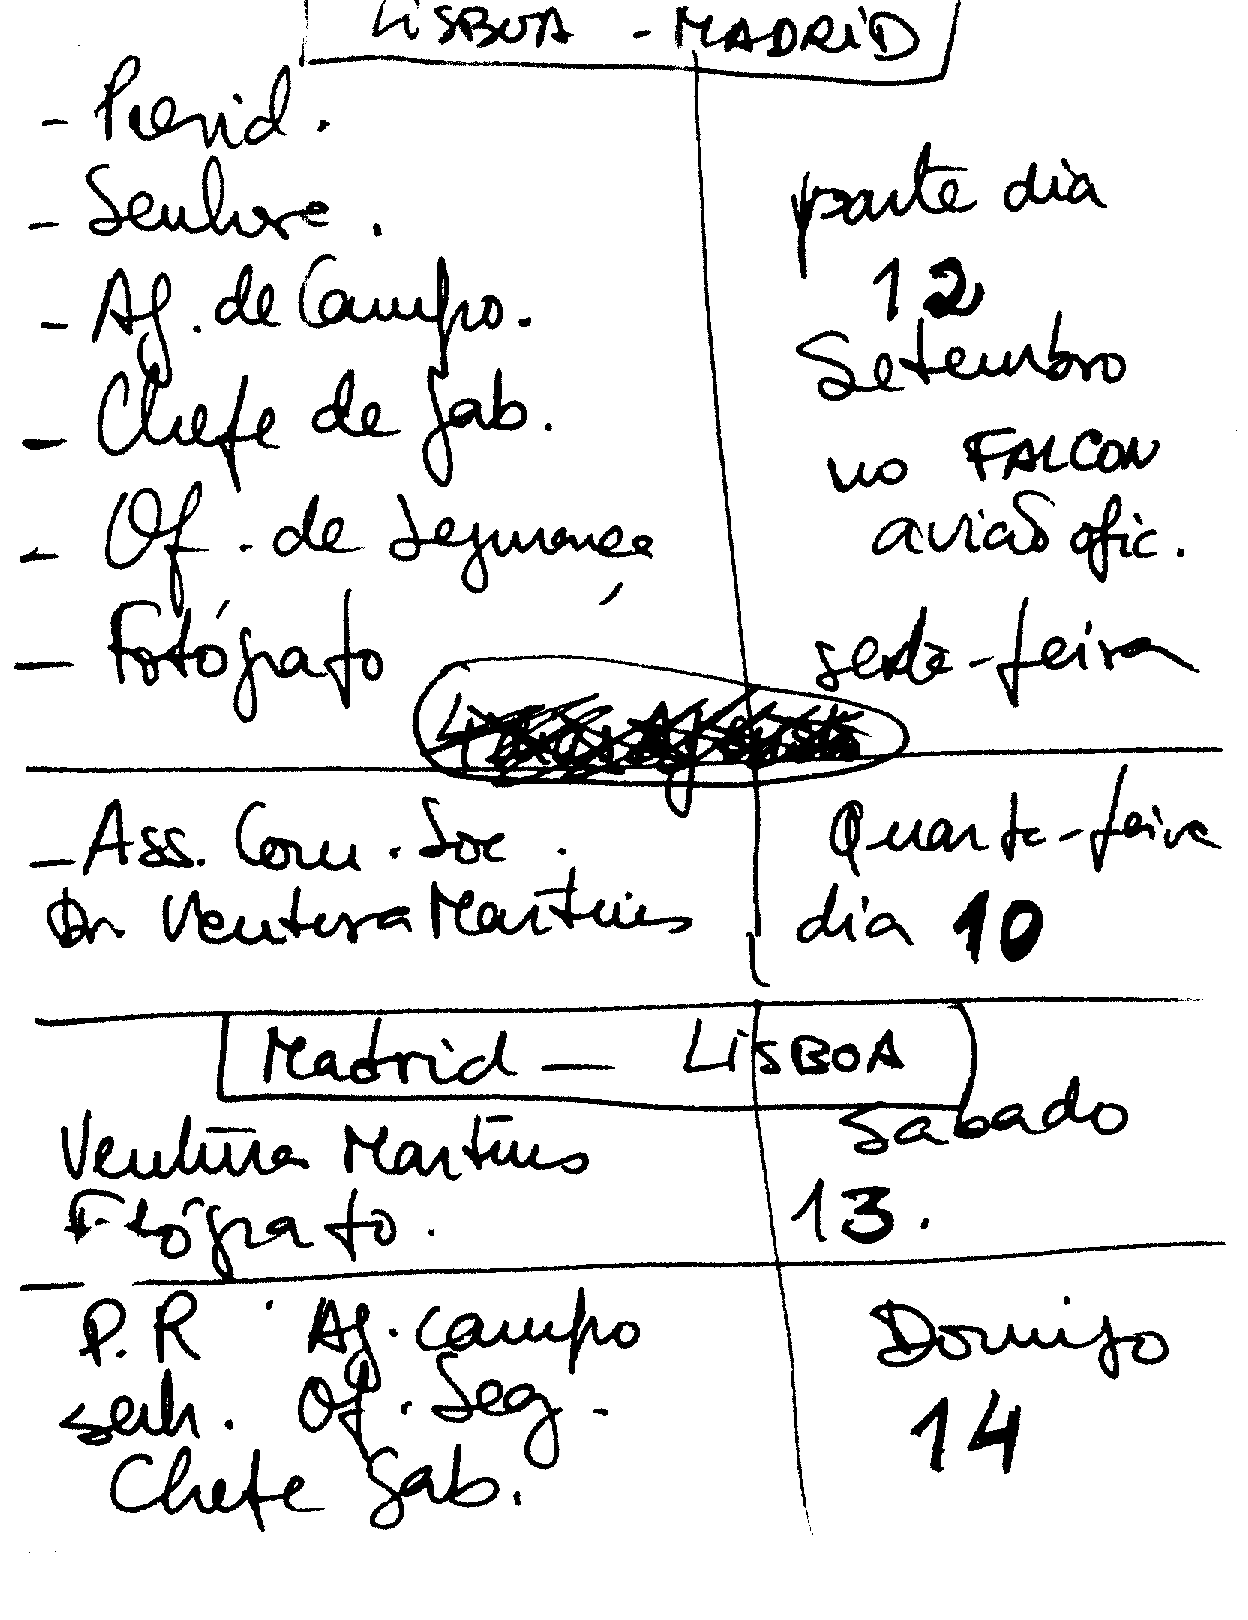 LISBOA - MADRID
- Presid.
- Senhora.
- Aj. de Campo.
- Chefe de Gab.
- Of. de Segurança
- Fotógrafo
parte dia
12
Setembro
no FALCON
avião ofic.
sexta-feira
- Ass. Com. Soc.
Dr. Ventura Martins
Quarta-feira
dia 10
Madrid - LISBOA
Ventura Martins
Fotógrafo.
Sabado
13.
P.R Aj. campo
senh. Of. Seg.
Chefe Gab.
Domingo
14